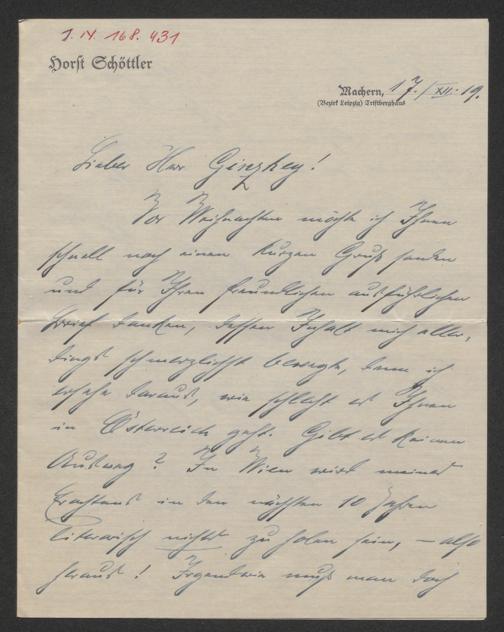 J. N. 168.431
Horst Schöttler
Machern, 17./XII. 19.
(Bezirk Leipzig) Triftberghaus
Lieber Herr Ginzkey!
Vor Weihnachten möchte ich Ihnen
schnell noch einen kurzen Gruß senden
und für Ihren freundlichen ausführlichen
Brief danken, dessen Inhalt mich aller-
dings schmerzlichst bewegte, denn ich
ersehe daraus, wie schlecht es Ihnen
in Österreich geht. Gibt es keinen
Ausweg? In Wien wird meines
Erachtens in den nächsten 10 Jahren
literarisch nichts zu holen sein, – also
heraus! Irgendwie muß man doch